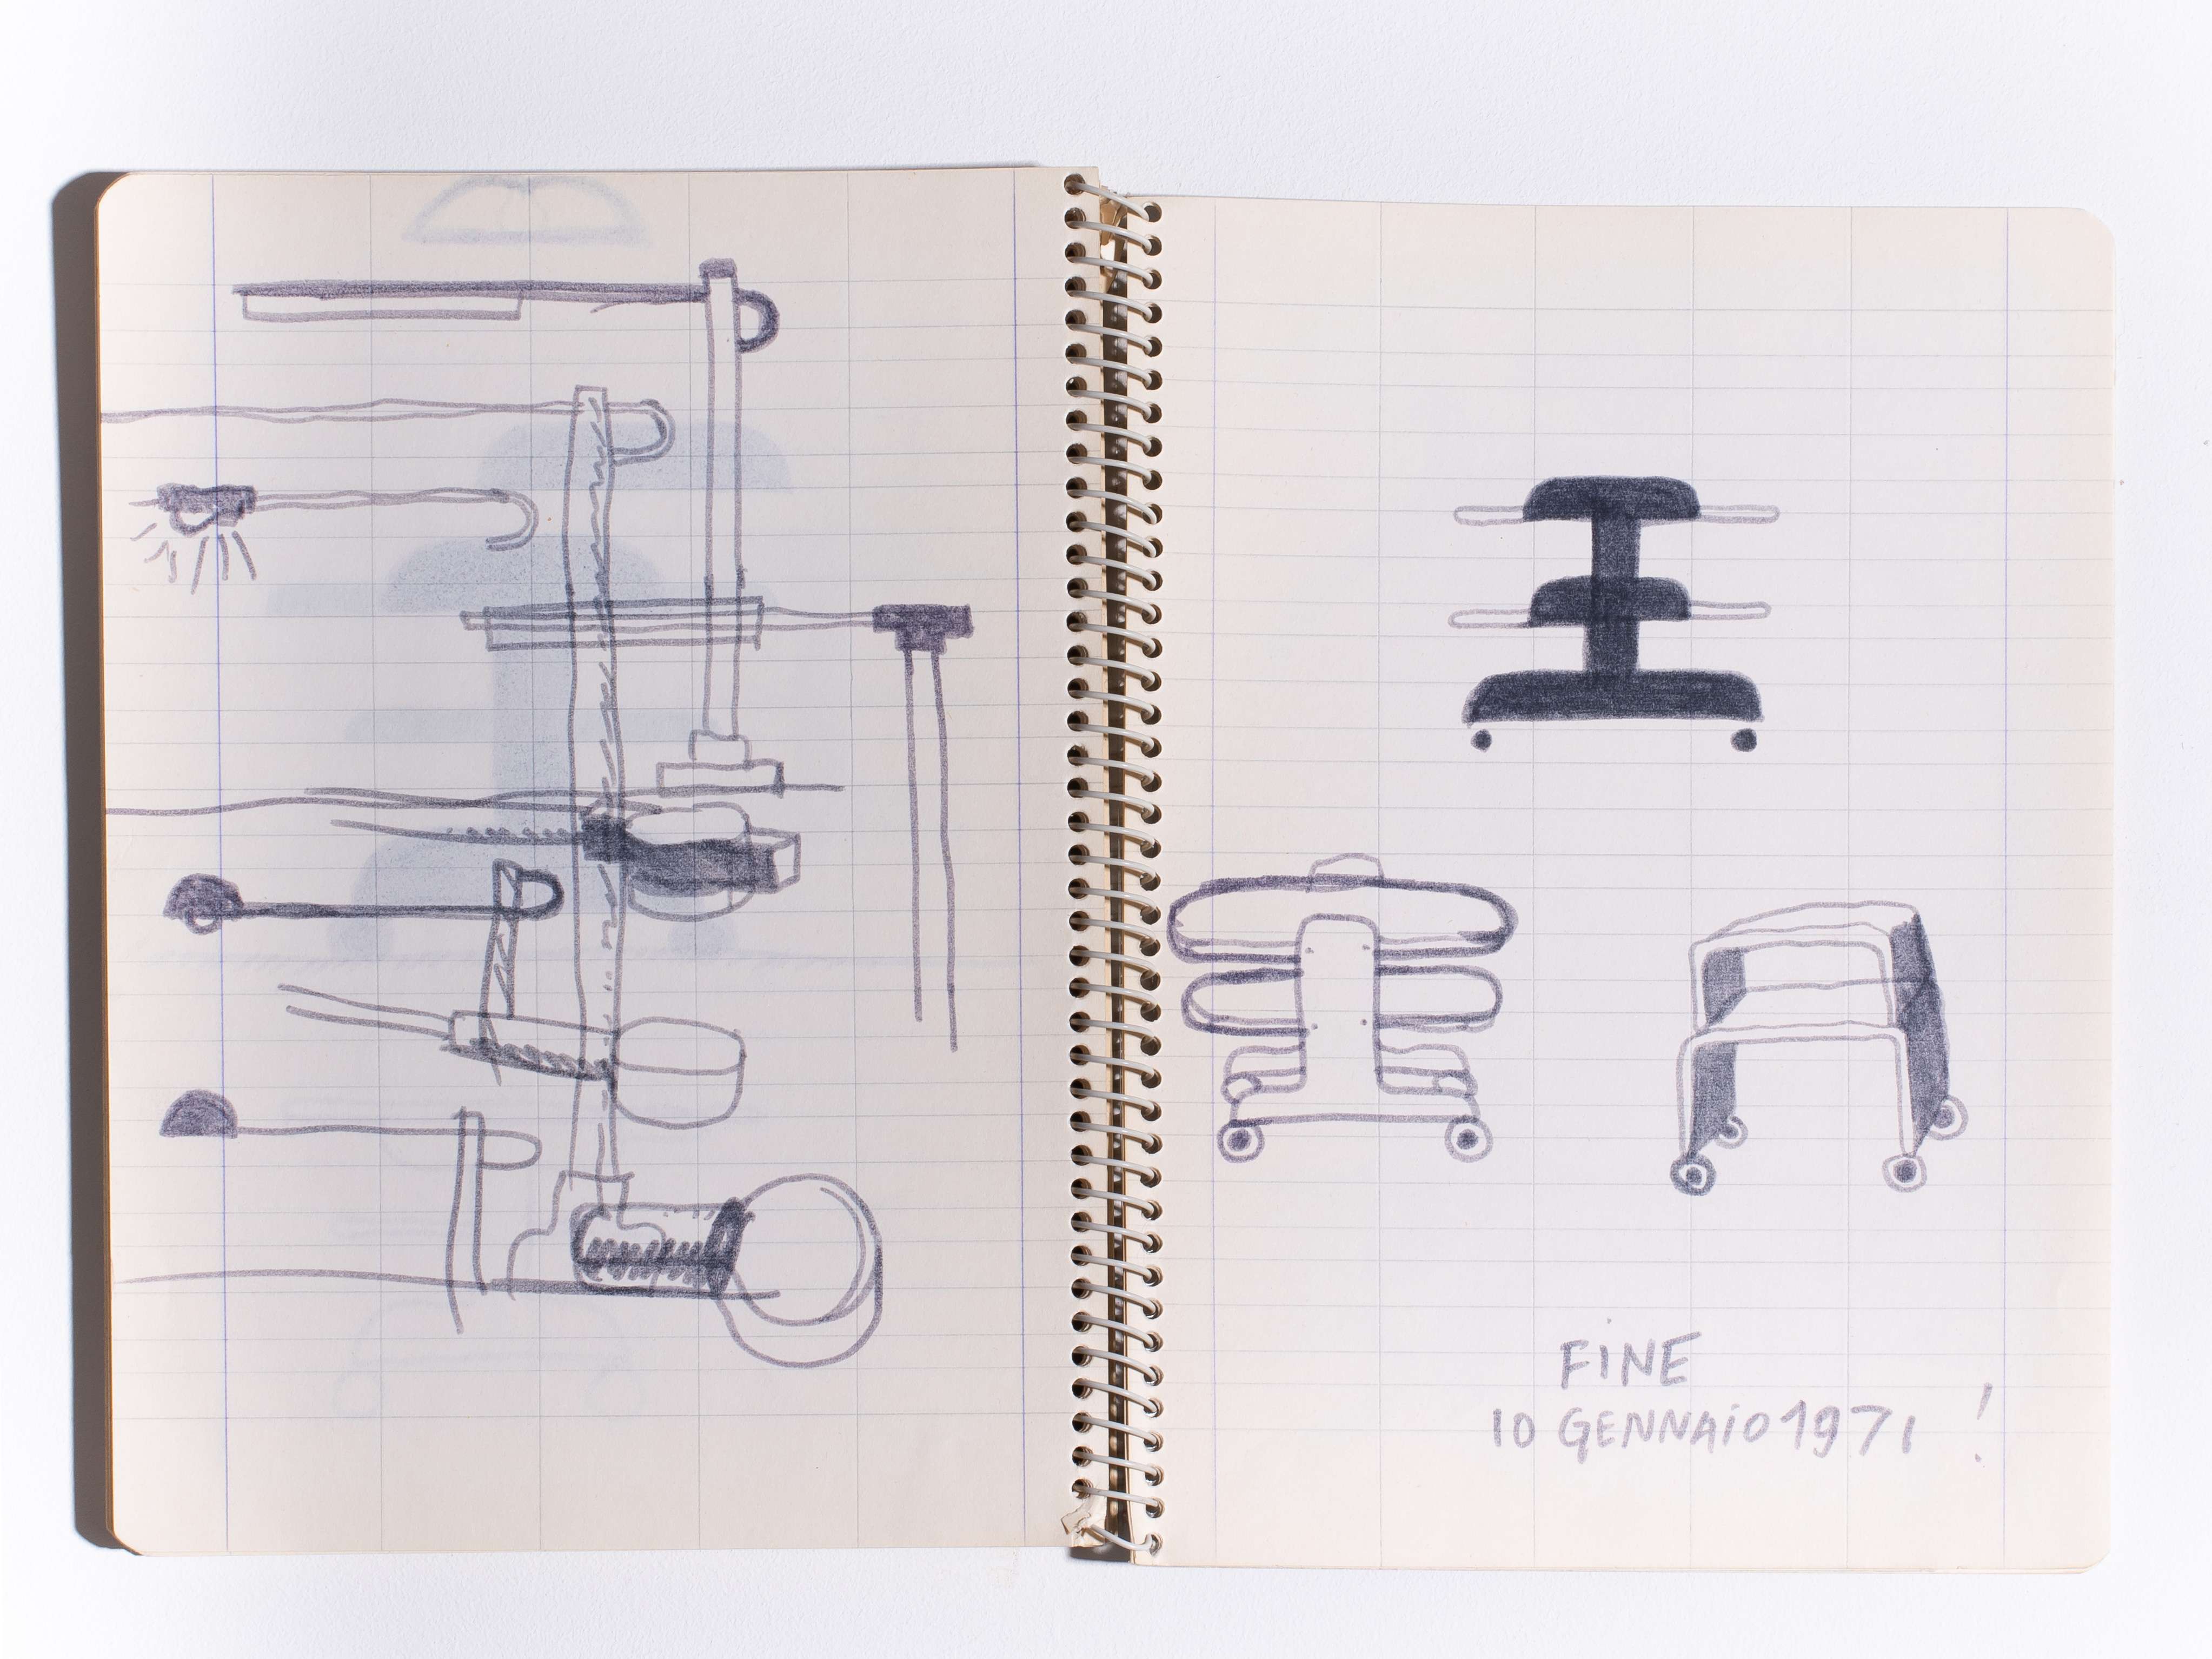 FiNE
10 GENNAiO 1971 !